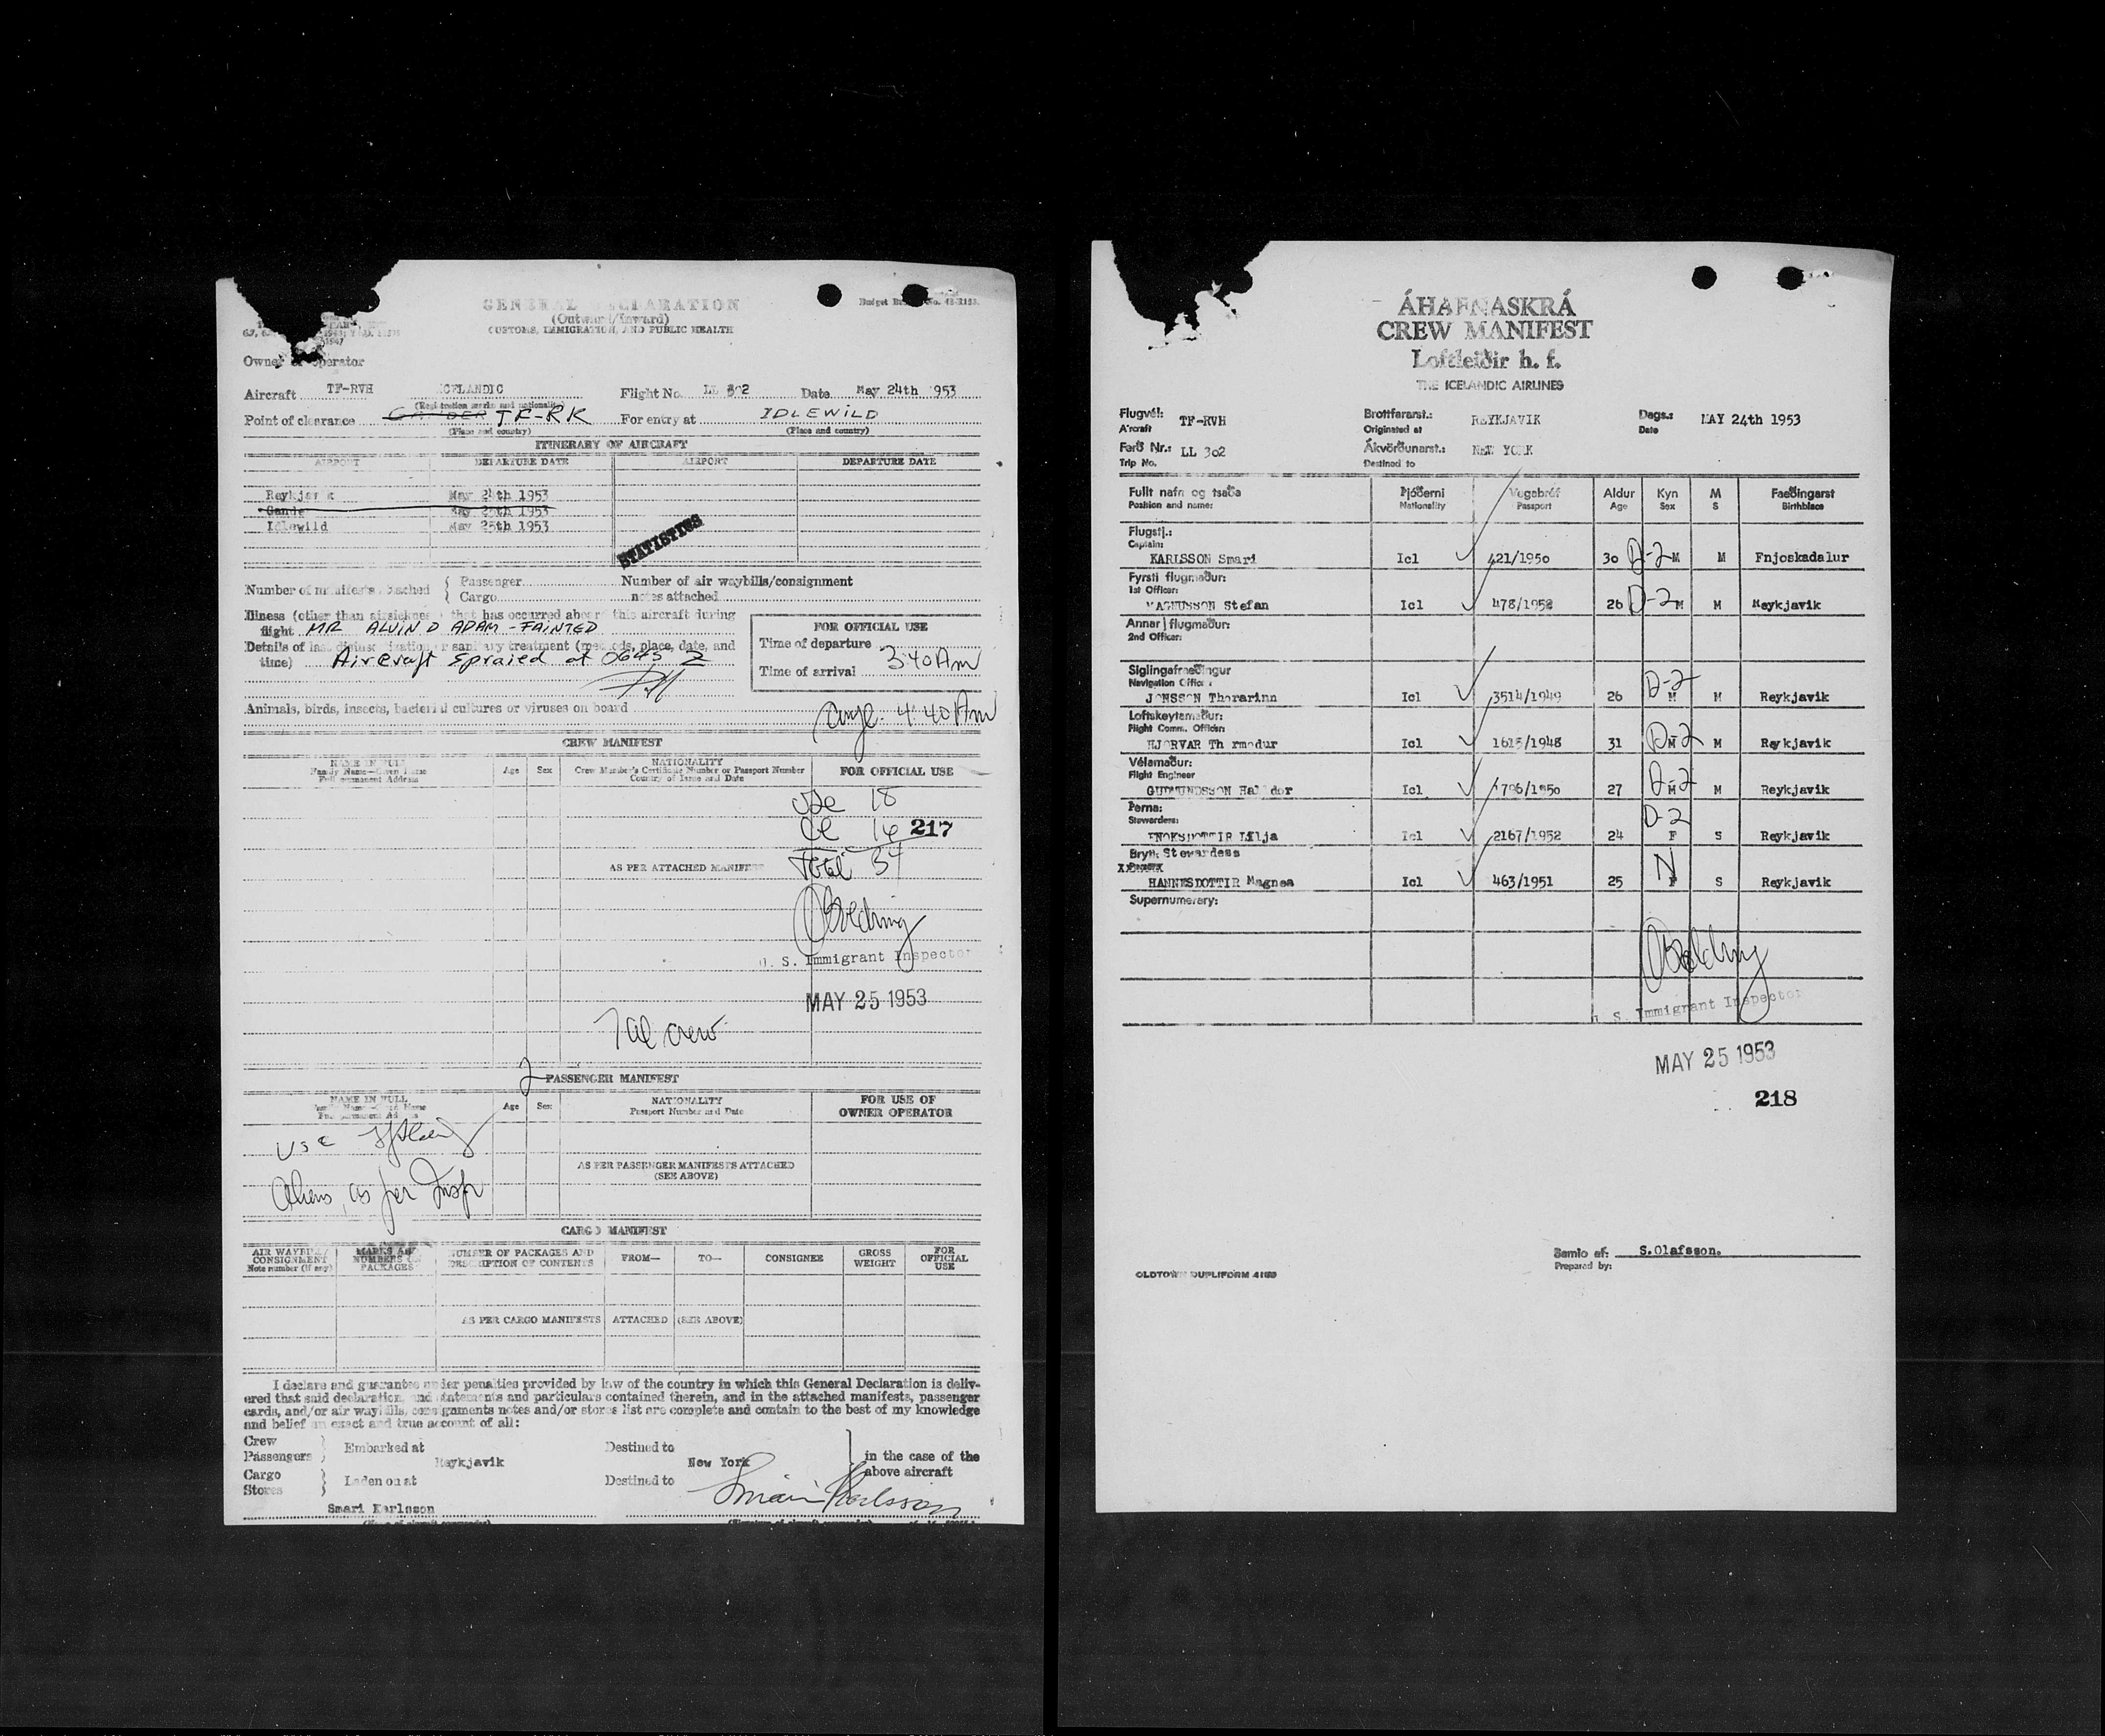 GENERAL DECLARATION
(Outward/Inward)
CUSTOMS, IMMIGRATION, AND PUBLIC HEALTH
1947
Owner or Operator
Aircraft TF-RVH ICELANDIC Flight No. LL 302 Date May 24th 1953
(Registration marks and nationality)
Point of clearance TF-RK For entry at IDLEWILD
(Place and country) (Place and country)
ITINERARY OF AIRCRAFT
AIRPORT DEPARTURE DATE AIRPORT DEPARTURE DATE
Reykjavik May 24th 1953
Gander May 25th 1953
Idlewild May 25th 1953
STATISTICS
Number of manifests attached { Passenger Number of air waybills/consignment
Cargo notes attached
Illness (other than airsickness) that has occurred aboard this aircraft during
flight MR ALVIN D ADAM - FAINTED
Details of last disinsectization or sanitary treatment (methods, place, date, and
time) Aircraft spraied at 0645 Z
FOR OFFICIAL USE
Time of departure
Time of arrival 3:40 AM
Animals, birds, insects, bacterial cultures or viruses on board
4:40 AM
CREW MANIFEST
NAME IN FULL
Family Name—Given Name
Full permanent Address
Age Sex
NATIONALITY
Crew Member's Certificate Number or Passport Number
Country of Issue and Date
FOR OFFICIAL USE
18
16 217
AS PER ATTACHED MANIFEST
Total 34
U. S. Immigrant Inspector
MAY 25 1953
7 al crew
2 PASSENGER MANIFEST
NAME IN FULL
Family Name—Given Name
Full permanent Address
Age Sex
NATIONALITY
Passport Number and Date
FOR USE OF
OWNER OPERATOR
USC
AS PER PASSENGER MANIFESTS ATTACHED
(SEE ABOVE)
Aliens, as per Insp
CARGO MANIFEST
AIR WAYBILL/
CONSIGNMENT
Note number (if any)
MARKS AND
NUMBERS ON
PACKAGES
NUMBER OF PACKAGES AND
DESCRIPTION OF CONTENTS
FROM— TO— CONSIGNEE
GROSS
WEIGHT
FOR
OFFICIAL
USE
AS PER CARGO MANIFESTS ATTACHED (SEE ABOVE)
I declare and guarantee under penalties provided by law of the country in which this General Declaration is deliv-
ered that said declaration, and statements and particulars contained therein, and in the attached manifests, passenger
cards, and/or air waybills, consignments notes and/or stores list are complete and contain to the best of my knowledge
and belief an exact and true account of all:
Crew
Passengers } Embarked at Reykjavik Destined to New York
Cargo
Stores } Laden on at Destined to
in the case of the
above aircraft
Smari Karlsson Smári Karlsson
ÁHAFNASKRÁ
CREW MANIFEST
Loftleiðir h. f.
THE ICELANDIC AIRLINES
Flugvél: TF-RVH Brottfararst.: REYKJAVIK Dags.: MAY 24th 1953
Aircraft Originated at Date
Ferð Nr.: LL 302 Ákvörðunarst.: NEW YORK
Trip No. Destined to
Fullt nafn og staða Þjóðerni Vegabréf Aldur Kyn M Fæðingarst
Position and name: Nationality Passport Age Sex S Birthplace
Flugstj.:
Captain:
KARLSSON Smari Icl 421/1950 30 D-2 M M Fnjoskadalur
Fyrsti flugmaður:
1st Officer:
MAGNUSSON Stefan Icl 478/1952 26 D-2 M M Reykjavik
Annar flugmaður:
2nd Officer:
Siglingafræðingur
Navigation Officer:
JONSSON Thorarinn Icl 3514/1949 26 D-2 M M Reykjavik
Loftskeytamaður:
Flight Comm. Officer:
HJORVAR Thormodur Icl 1615/1948 31 D-2 M M Reykjavik
Vélamaður:
Flight Engineer
GUDMUNDSSON Halldor Icl 1796/1950 27 D-2 M M Reykjavik
Þerna:
Stewardess:
ENOKSDOTTIR Lilja Icl 2167/1952 24 D-2 F S Reykjavik
Bryti: Stewardess
HANNESDOTTIR Magnea Icl 463/1951 25 N F S Reykjavik
Supernumerary:
U. S. Immigrant Inspector
MAY 25 1953
218
Samið af: S.Olafsson.
Prepared by:
OLDTOWN DUPLIFORM